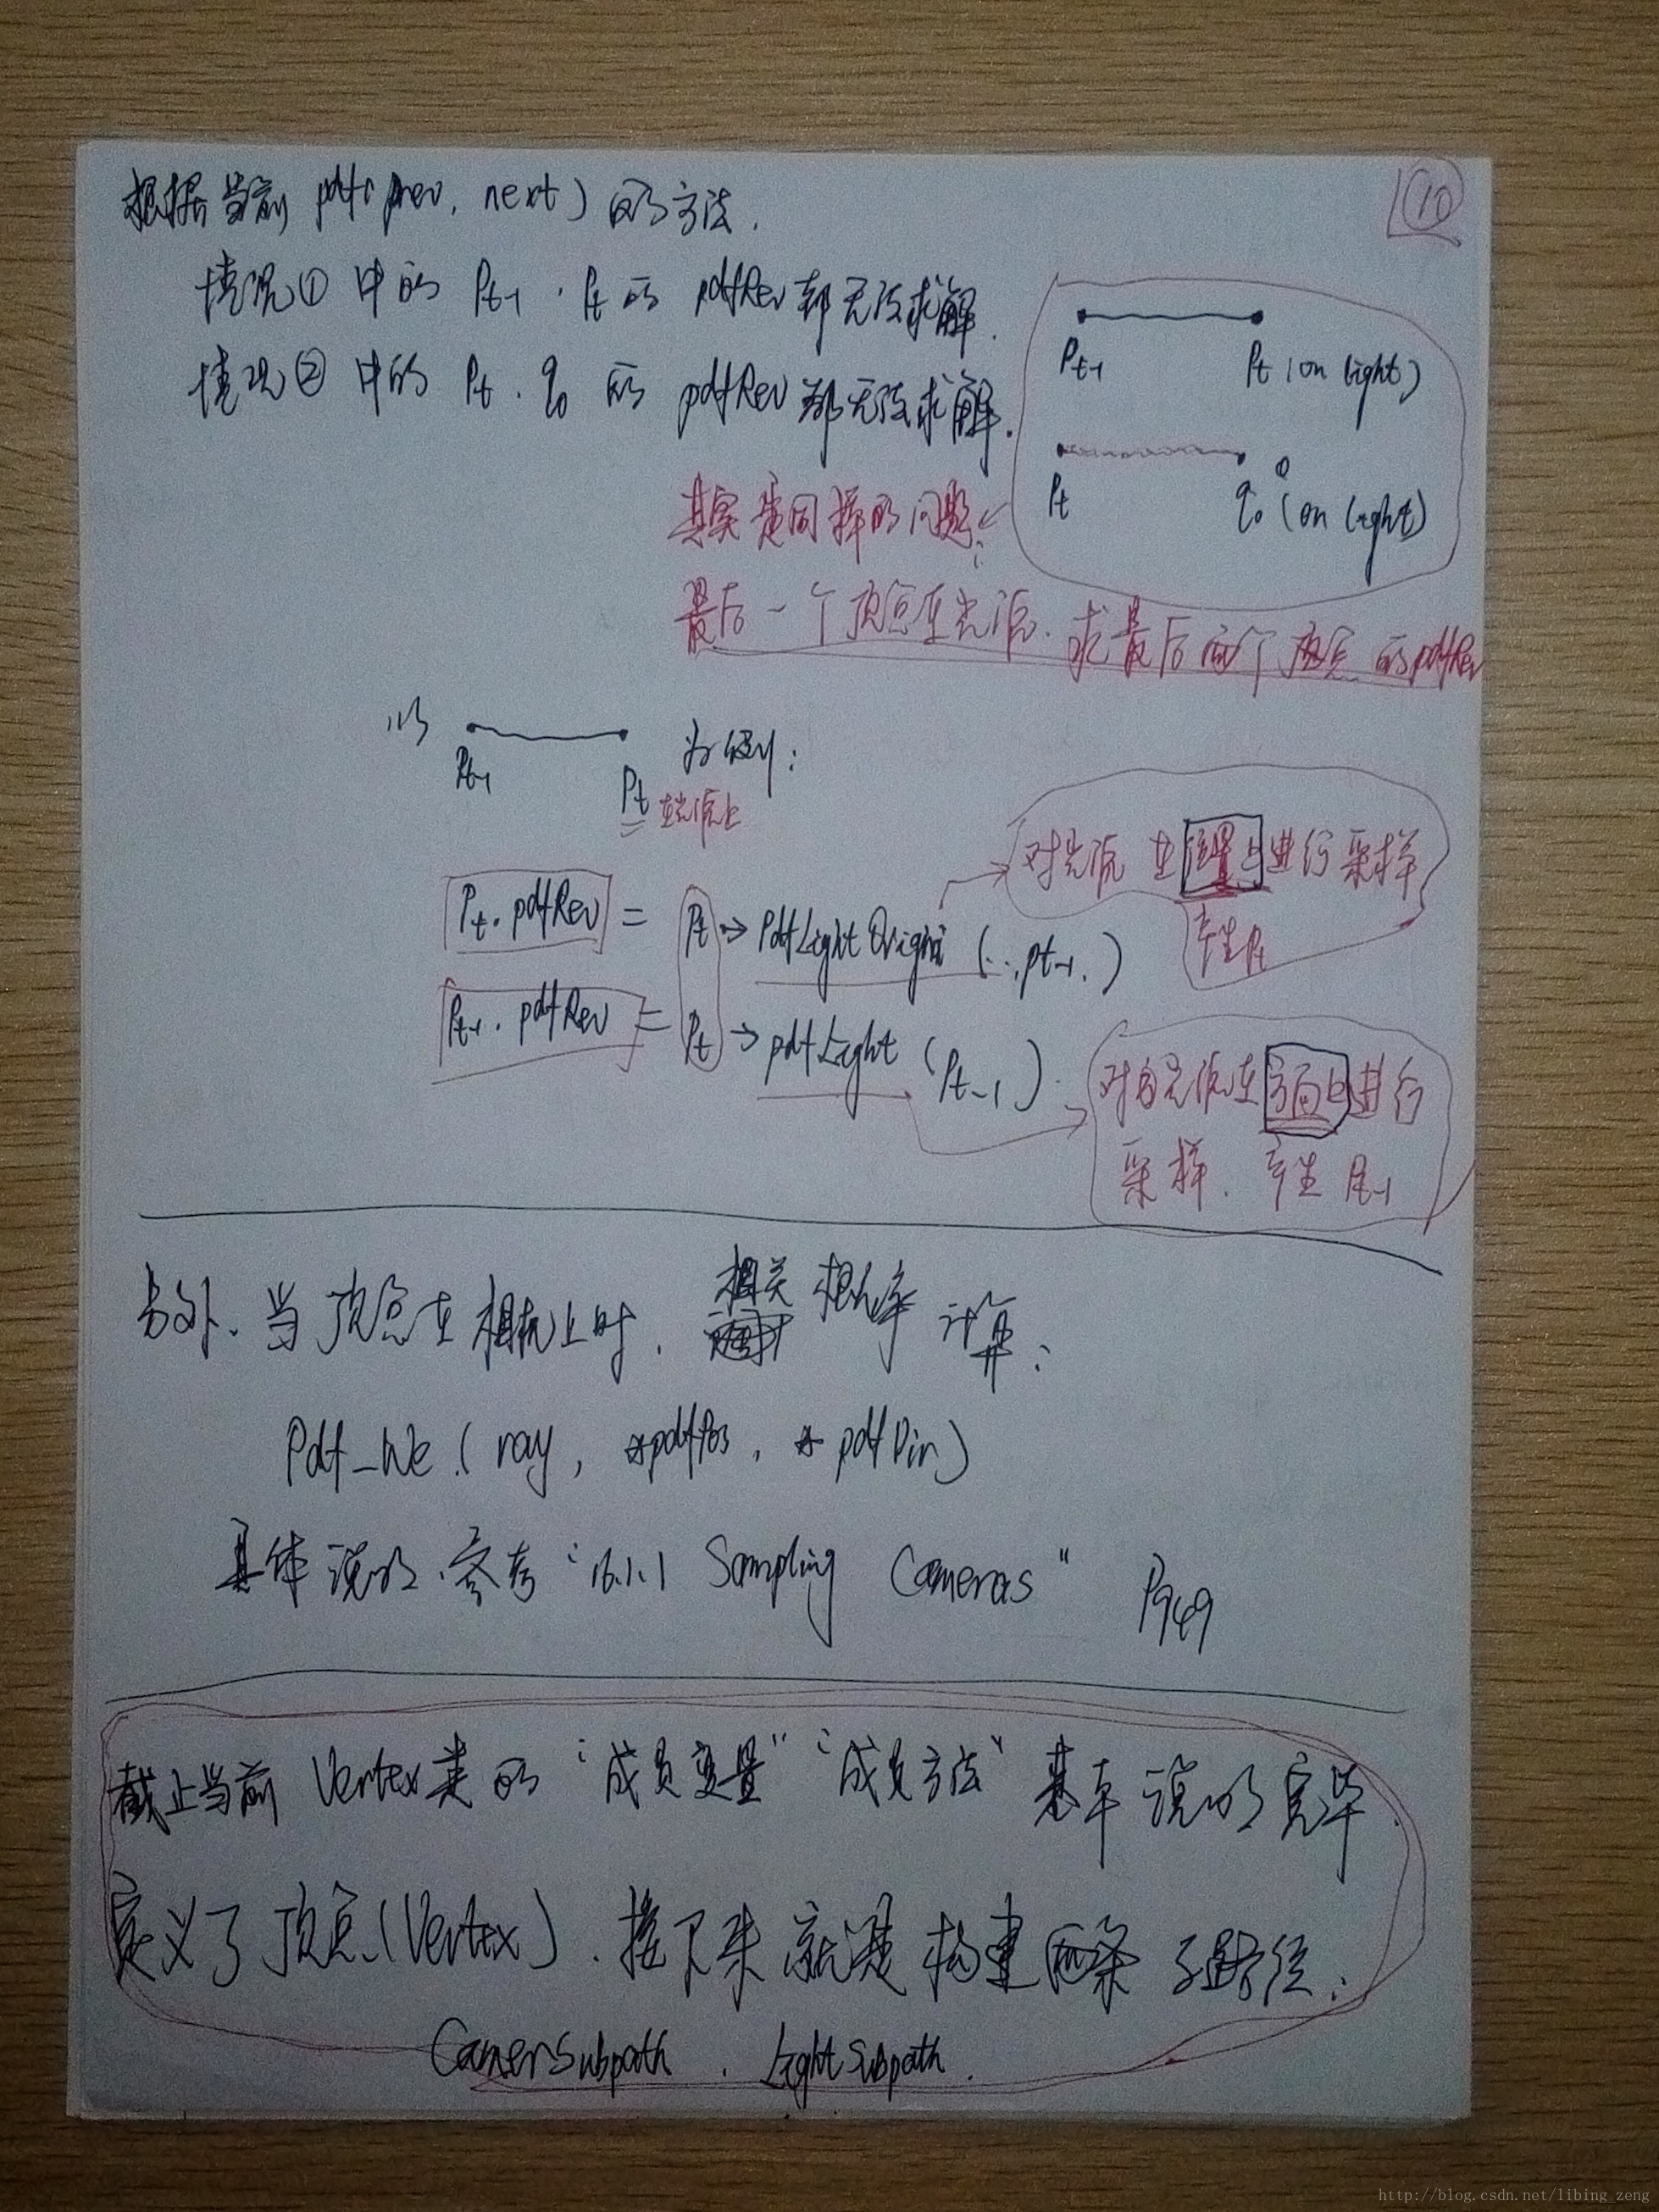 ⑩
根据当前 pdf(prev, next) 的方法.
情况① 中的 Pt-1 . Pt 的 pdfRev 都无法求解.
情况② 中的 Pt . q0 的 pdfRev 都无法求解.
Pt-1 Pt (on light)
Pt q0 (on light)
其实是同样的问题:
最后一个顶点在光源. 求最后两个顶点的pdfRev
以 Pt-1 Pt 在光源上 为例:
对光源 在位置上进行采样
产生Pt
Pt.pdfRev = Pt → PdfLightOrigin (...,pt-1.)
Pt-1.pdfRev = Pt → pdfLight (Pt-1).
对光源在方向上进行
采样. 产生 Pt-1
另外. 当顶点在相机上时. 相关概率计算:
Pdf_We.(ray, *pdfPos, *pdfDir)
具体说明. 参考 "16.1.1 Sampling Cameras" P949
截止当前 Vertex类的 "成员变量" "成员方法" 基本说明完毕.
定义了顶点(Vertex). 接下来就是构建两条子路径:
CamerSubpath . LightSubpath.
http://blog.csdn.net/libing_zeng